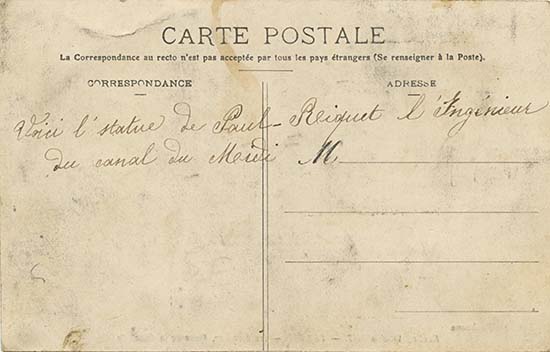 CARTE POSTALE
La Correspondance au recto n'est pas acceptée par tous les pays étrangers (Se renseigner à la Poste).
CORRESPONDANCE
ADRESSE
Voici l'statue de Paul-Reiquet l'Ingénieur
du canal du Meidi
M